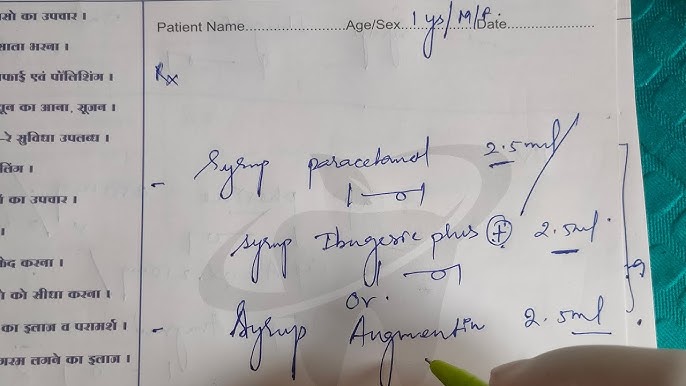 सो का उपचार ।
साला भरना ।
फाई एवं पॉलिशिंग ।
खून का आना, सूजन ।
-रे सुविधा उपलब्ध ।
लिंग ।
ं का उपचार ।
।
करना ।
को सीधा करना ।
का इलाज व परामर्श ।
गरम लगने का इलाज ।
Patient Name Age/Sex 1 ys/M/F. Date
Rx
- Syrup paracetamol 2.5ml
1 - 0 - 1
syrup Ibugesic plus + 2.5ml.
1 - 0 - 1
or.
- Syrup Augmentin 2.5ml.